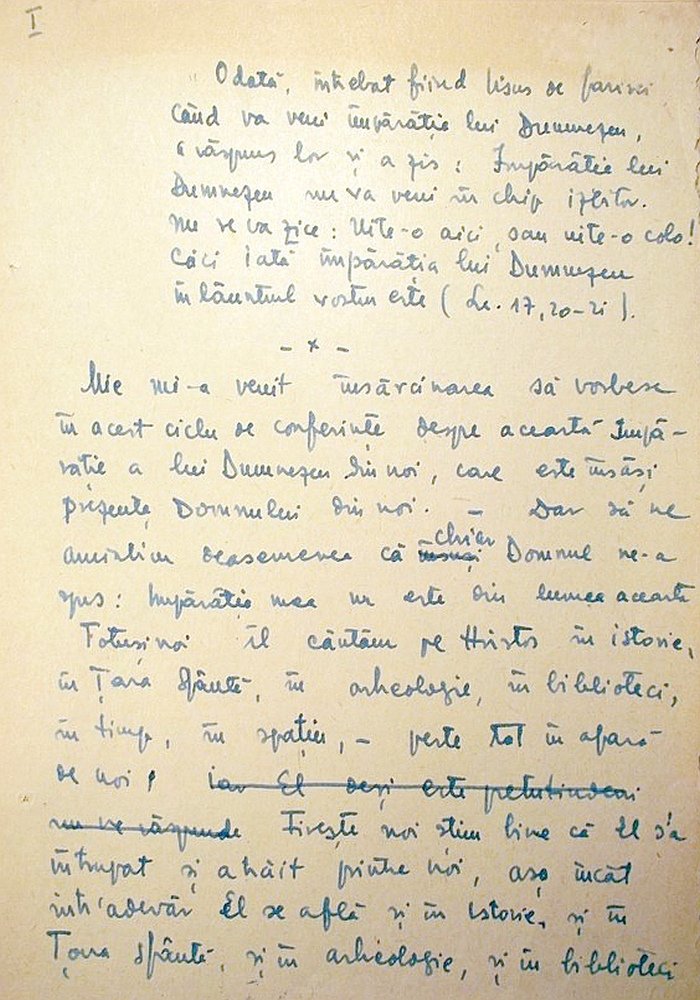 I
Odată, întrebat fiind Iisus de farisei
când va veni împărăția lui Dumnezeu,
a răspuns lor și a zis: Împărăția lui
Dumnezeu nu va veni în chip izbitor.
nu se va zice: Uite-o aici, sau uite-o colo!
Căci iată împărăția lui Dumnezeu
în lăuntrul vostru este (Lc. 17, 20-21).
- x -
Mie mi-a venit însărcinarea să vorbesc
în acest ciclu de conferințe despre această Împă-
răție a lui Dumnezeu din noi, care este însăși
prezența Domnului din noi. - Dar să ne
amintim deasemenea că însuși chiar Domnul ne-a
spus: Împărăția mea nu este din lumea aceasta
Totuși noi Îl căutăm pe Hristos în istorie,
în Țara Sfântă, în arheologie, în biblioteci,
în timp, în spațiu, - peste tot în afară
de noi, iar El deși este pretutindeni
nu ne răspunde Firește noi știm bine că El s'a
întrupat și a trăit printre noi, așa încât
într'adevăr El se află și în istorie, și în
Țara Sfântă, și în arheologie, și în biblioteci